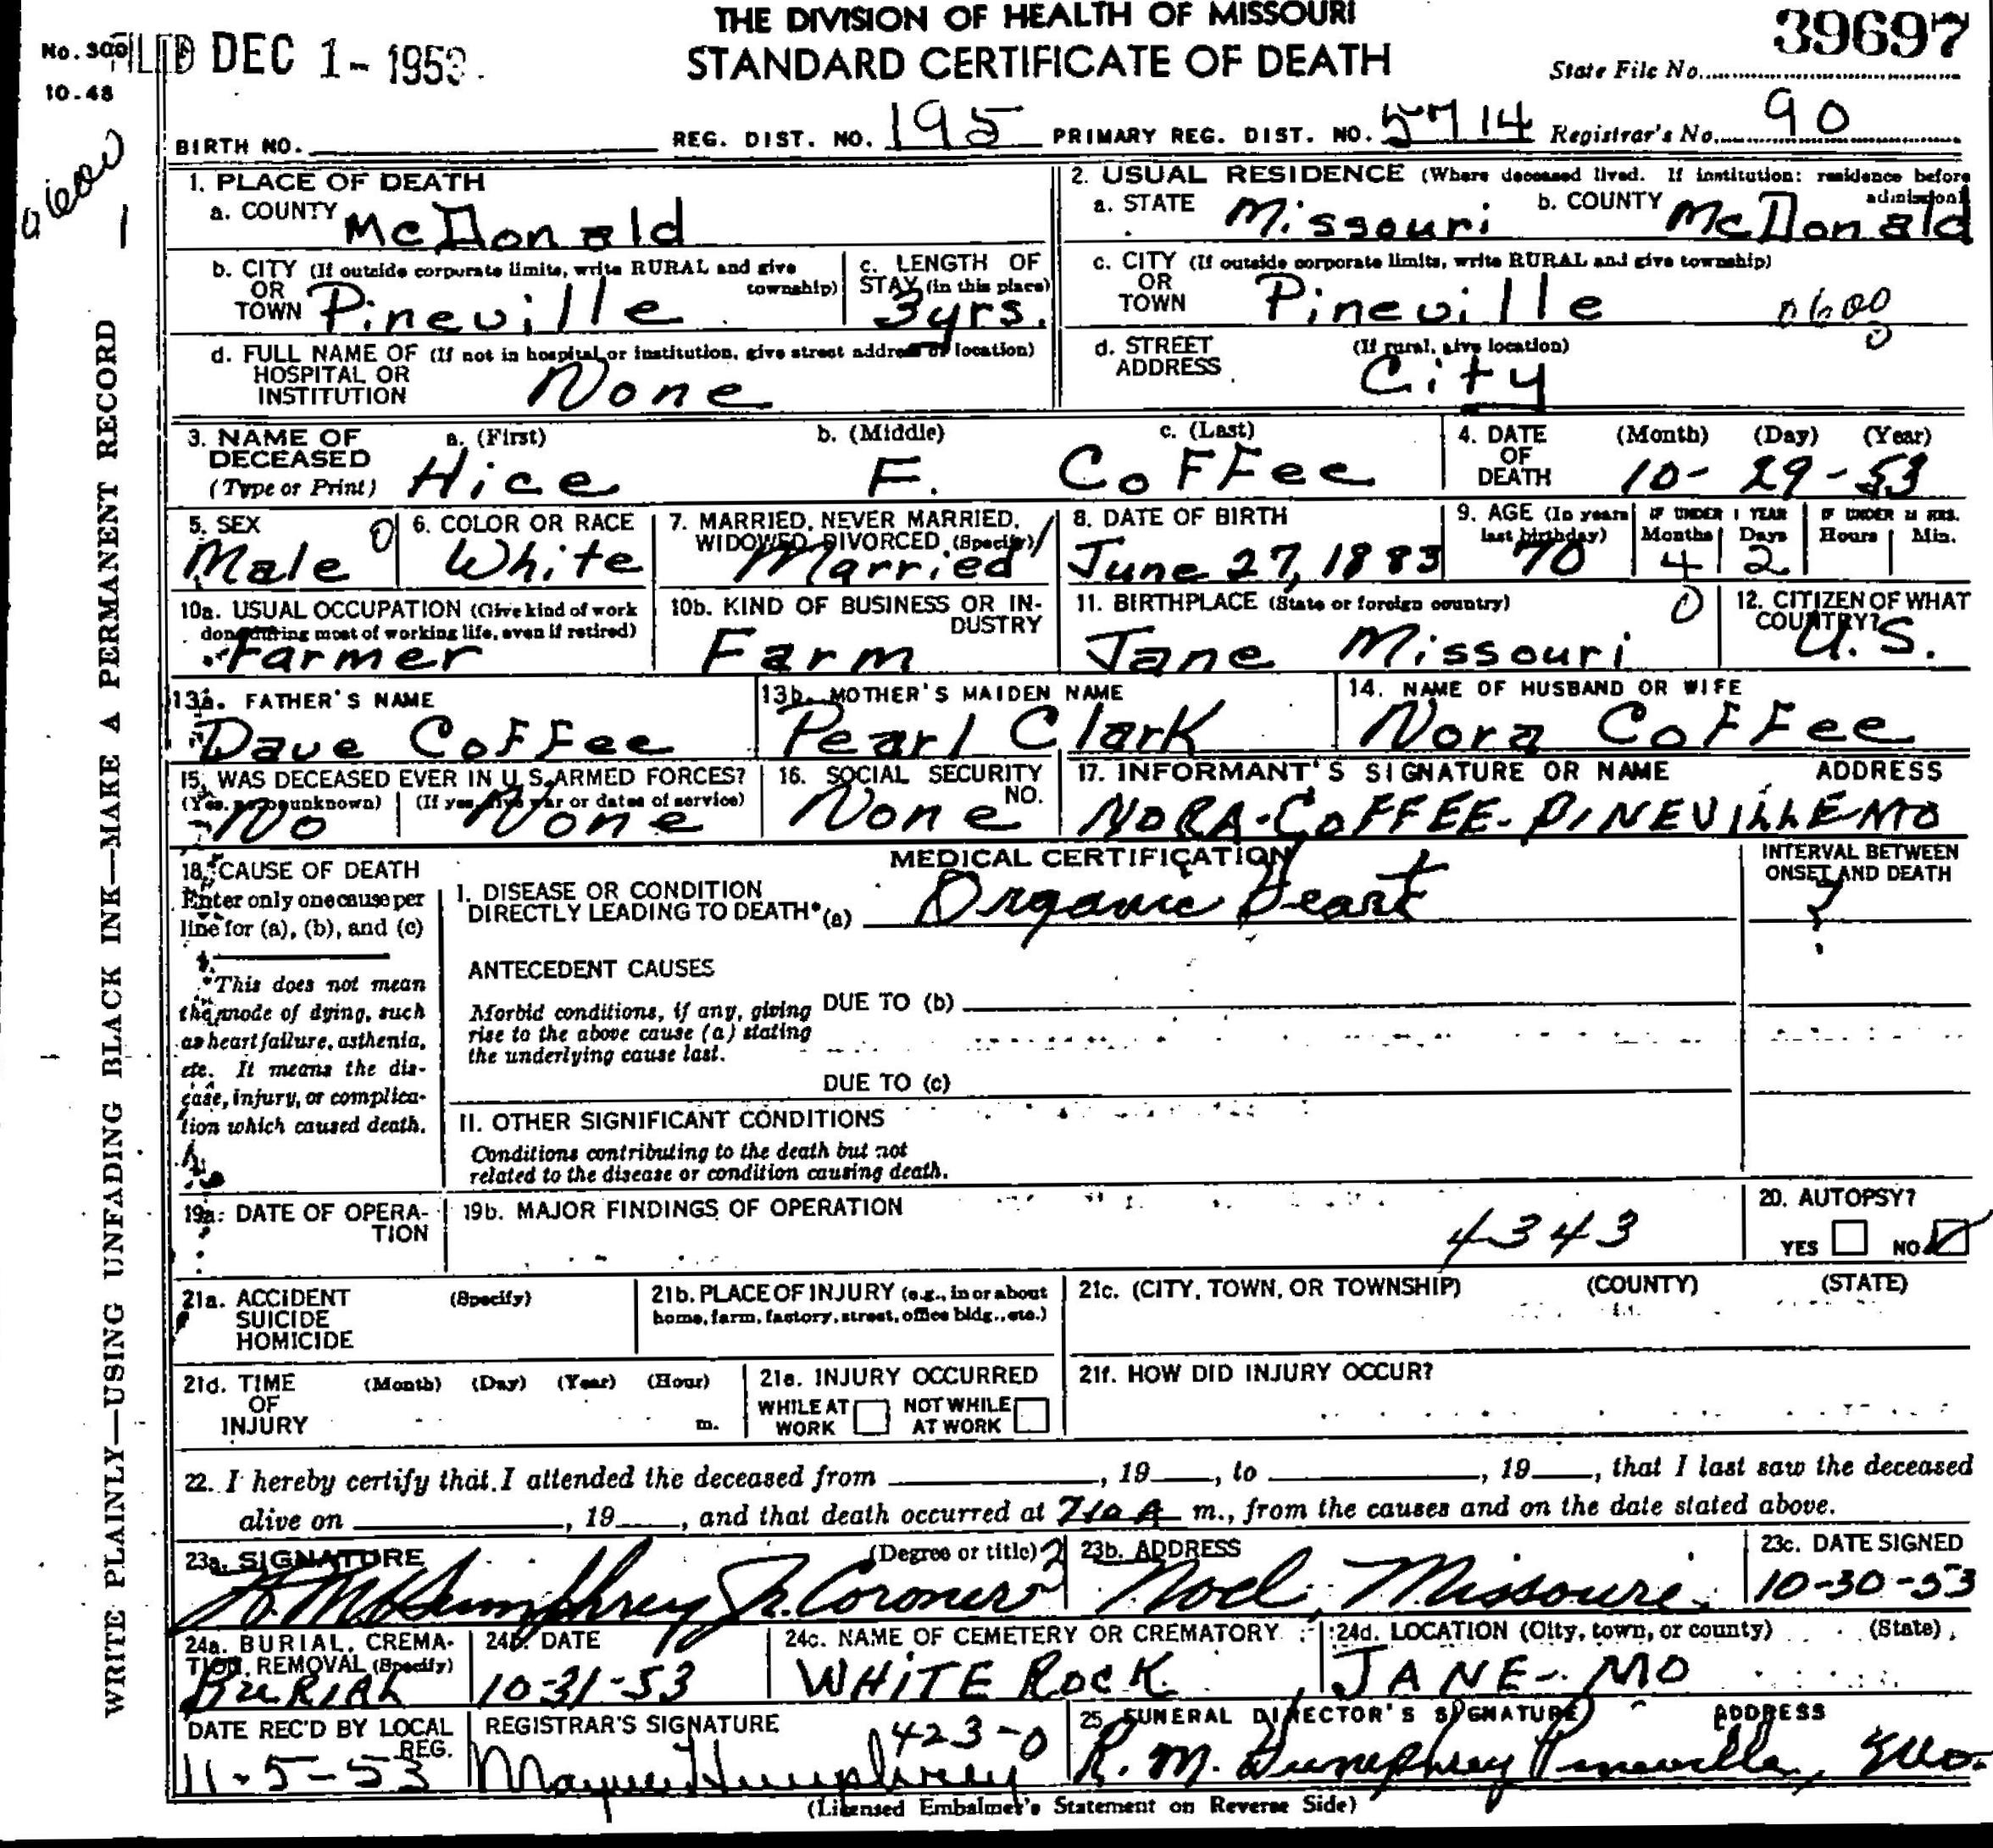 THE DIVISION OF HEALTH OF MISSOURI
STANDARD CERTIFICATE OF DEATH
No. 300
10-48
FILED DEC 1 - 1953
State File No. 39697
BIRTH NO.
REG. DIST. NO. 195 PRIMARY REG. DIST. NO. 5714 Registrar's No. 90
WRITE PLAINLY—USING UNFADING BLACK INK—MAKE A PERMANENT RECORD
1. PLACE OF DEATH
a. COUNTY McDonald
b. CITY (If outside corporate limits, write RURAL and give township) OR TOWN Pineville
c. LENGTH OF STAY (in this place) 3yrs.
d. FULL NAME OF (If not in hospital or institution, give street address or location) HOSPITAL OR INSTITUTION None
2. USUAL RESIDENCE (Where deceased lived. If institution: residence before admission)
a. STATE Missouri b. COUNTY McDonald
c. CITY (If outside corporate limits, write RURAL and give township) OR TOWN Pineville 0600
0
d. STREET ADDRESS (If rural, give location) City
3. NAME OF DECEASED (Type or Print) a. (First) Hice b. (Middle) F. c. (Last) CoFFee
4. DATE OF DEATH (Month) (Day) (Year) 10-29-53
5. SEX Male 0
6. COLOR OR RACE White
7. MARRIED, NEVER MARRIED, WIDOWED, DIVORCED (Specify) Married 1
8. DATE OF BIRTH June 27, 1883
9. AGE (In years last birthday) 70 IF UNDER 1 YEAR Months 4 Days 2 IF UNDER 24 HRS. Hours Min.
10a. USUAL OCCUPATION (Give kind of work done during most of working life, even if retired) Farmer
10b. KIND OF BUSINESS OR INDUSTRY Farm
11. BIRTHPLACE (State or foreign country) Jane Missouri 0
12. CITIZEN OF WHAT COUNTRY? U.S.
13a. FATHER'S NAME Dave CoFFee
13b. MOTHER'S MAIDEN NAME Pearl Clark
14. NAME OF HUSBAND OR WIFE Nora CoFFee
15. WAS DECEASED EVER IN U.S. ARMED FORCES? (Yes, no, or unknown) No (If yes, give war or dates of service) None
16. SOCIAL SECURITY NO. None
17. INFORMANT'S SIGNATURE OR NAME ADDRESS
NORA-COFFEE-PINEVILLE MO
18. CAUSE OF DEATH
Enter only one cause per line for (a), (b), and (c)
*This does not mean the mode of dying, such as heart failure, asthenia, etc. It means the disease, injury, or complication which caused death.
MEDICAL CERTIFICATION
I. DISEASE OR CONDITION DIRECTLY LEADING TO DEATH* (a) Organic Heart
INTERVAL BETWEEN ONSET AND DEATH
?
ANTECEDENT CAUSES
Morbid conditions, if any, giving rise to the above cause (a) stating the underlying cause last.
DUE TO (b)
DUE TO (c)
II. OTHER SIGNIFICANT CONDITIONS
Conditions contributing to the death but not related to the disease or condition causing death.
19a. DATE OF OPERATION
19b. MAJOR FINDINGS OF OPERATION
4343
20. AUTOPSY?
YES NO
21a. ACCIDENT SUICIDE HOMICIDE (Specify)
21b. PLACE OF INJURY (e.g., in or about home, farm, factory, street, office bldg., etc.)
21c. (CITY, TOWN, OR TOWNSHIP) (COUNTY) (STATE)
21d. TIME OF INJURY (Month) (Day) (Year) (Hour) m.
21e. INJURY OCCURRED WHILE AT WORK NOT WHILE AT WORK
21f. HOW DID INJURY OCCUR?
22. I hereby certify that I attended the deceased from , 19 , to , 19 , that I last saw the deceased
alive on , 19 , and that death occurred at 710 A m., from the causes and on the date stated above.
23a. SIGNATURE (Degree or title) Humphrey Jr. Coroner 2
23b. ADDRESS Noel, Missouri
23c. DATE SIGNED 10-30-53
24a. BURIAL, CREMATION, REMOVAL (Specify) BURIAL
24b. DATE 10-31-53
24c. NAME OF CEMETERY OR CREMATORY WHITE ROCK
24d. LOCATION (City, town, or county) (State) JANE - MO
DATE REC'D BY LOCAL REG. 11-5-53
REGISTRAR'S SIGNATURE Humphrey
423-0
25. FUNERAL DIRECTOR'S SIGNATURE ADDRESS
R. M. Humphrey Pineville, Mo.
(Licensed Embalmer's Statement on Reverse Side)